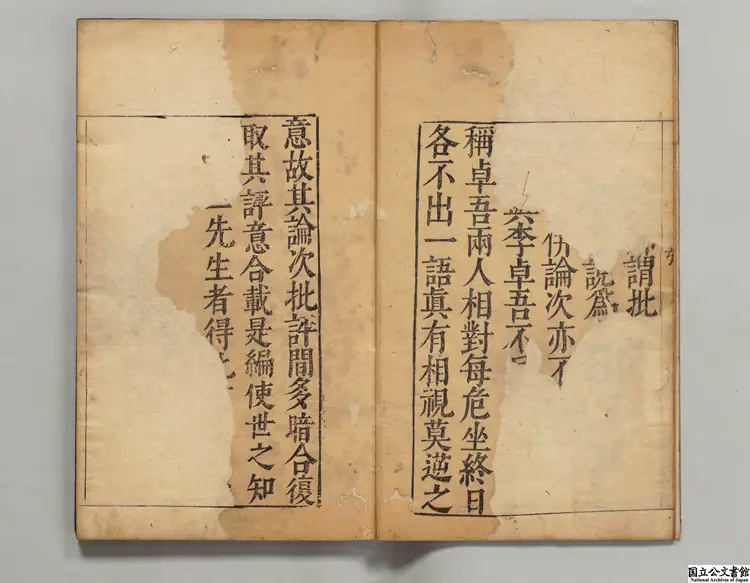 謂批
說為
論次亦不
李卓吾不
稱卓吾兩人相對每危坐終日
各不出一語真有相視莫逆之
意故其論次批評間多暗合復
取其評意合載是編使世之知
一先生者得
国立公文書館
National Archives of Japan